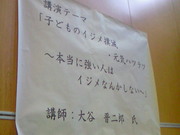 講演テーマ
「子どものイジメ撲滅
・元気ハツラツ
～本当に強い人は
イジメなんかしない～」
講師：大谷 晋二郎 氏